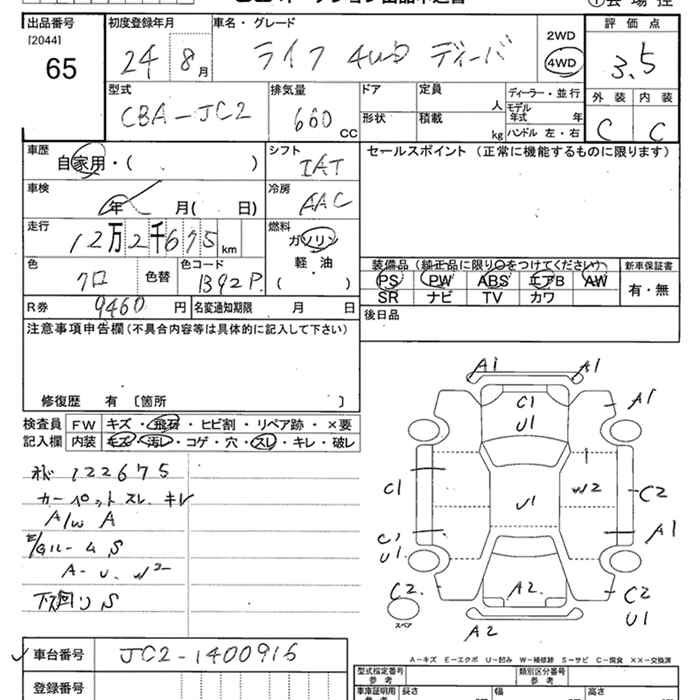 出品番号 初度登録年月 車名・グレード 2WD 評価点
[2044]
65 24 8月 ライフ 4WD ディーバ 4WD 3.5
型式 排気量 ドア 定員 人 ディーラー・並行 外装 内装
CBA-JC2 660 CC 形状 積載 kg モデル年式 年 C C
ハンドル 左・右
車歴 自家用・( ) シフト IAT セールスポイント(正常に機能するものに限ります)
車検 年 月( 日) 冷房 AAC
走行 12万2千675km 燃料 ガソリン
色 クロ 色替 色コード B92P 軽・油 ( )
装備品(純正品に限り○をつけてください) 新車保証書
PS PW ABS エアB AW 有・無
SR ナビ TV カワ
R券 9460円 名変通知期限 月 日 後日品
注意事項申告欄(不具合内容等は具体的に記入して下さい)
修復歴 有〔箇所 〕
検査員 FW キズ・飛石・ヒビ割・リペア跡・×要
記入欄 内装 キズ・汚レ・コゲ・穴・スレ・キレ・破レ
122675
カーペットスレ キレ
A/W A
ルーム S
A-U.W2
下回り S
A1 A1
C1 U1 A1
C1 U1 W2 C2
C1 U1 A1
C2 A2 C2 U1
スペア
A2
A-キズ E-エクボ U-凹み W-補修跡 S-サビ C-腐食 XX-交換済
車台番号 JC2-1400916
型式指定番号 参考 類別区分番号 参考
登録番号 車庫証明用 参考 長さ 幅 高さ